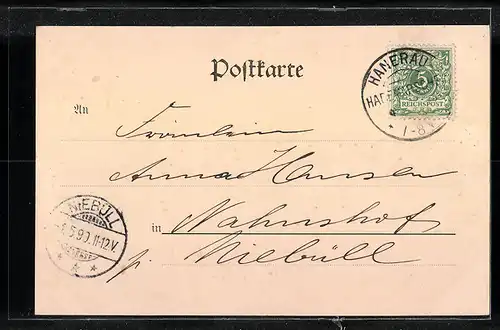 Postkarte
HANERAU
5
REICHSPOST
1-8
An
Fräulein
Anna Hansen
in Nahnshof
p. Niebüll
NIEBÜLL
5.9
11-12.V.